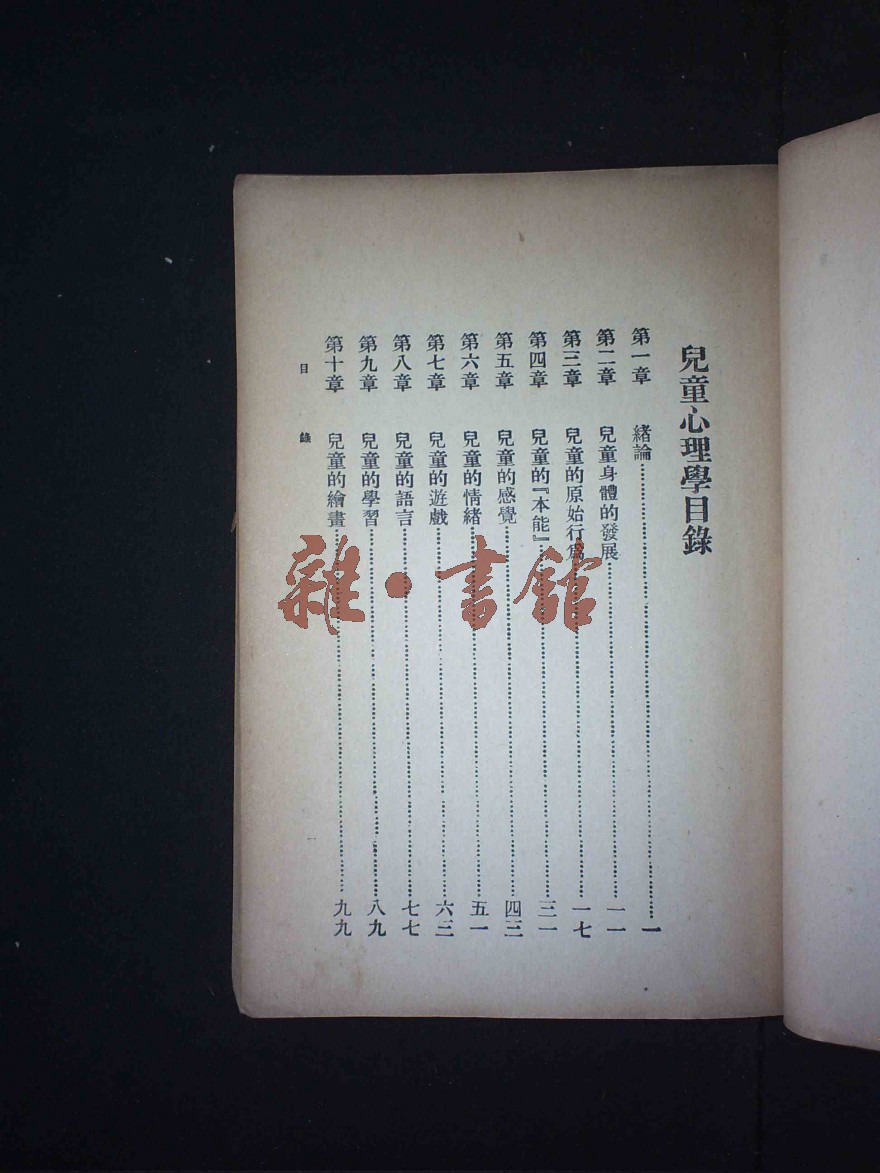 兒童心理學目錄
第一章 緒論……一
第二章 兒童身體的發展……一一
第三章 兒童的原始行爲……一七
第四章 兒童的『本能』……三一
第五章 兒童的感覺……四三
第六章 兒童的情緒……五一
第七章 兒童的遊戲……六三
第八章 兒童的語言……七七
第九章 兒童的學習……八九
第十章 兒童的繪畫……九九
目錄
一
雜·書館